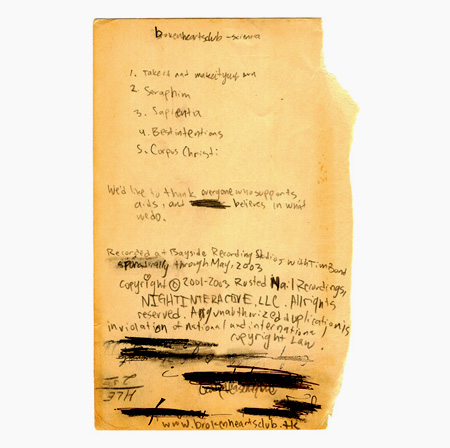 brokenheartsclub - scienza
1. Take it and make it your own
2 Seraphim
3. Sapienta
4. Best intentions
5. Corpus Christi
We'd like to thank everyone who supports
aids, and believes in what
we do.
Recorded at Bayside Recording Studios with Tim Bond
sporadically through May, 2003
copyright © 2001-2003 Rusted Nail Recordings,
NIGHTINTERACTIVE, LLC. All rights
reserved. Any unauthorized duplication is
in violation of national and international
copyright Law.
www.brokenheartsclub.tk